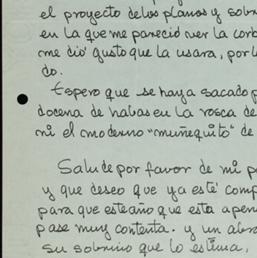 el proyecto de los planos y sobr
en la que me pareció ver la corb
me dió gusto que la usara, por l
do.
Espero que se haya sacado p
docena de habas en la rosca de
ni el moderno "muñequito" de
Salude por favor de mi p
y que deseo que ya esté comp
para que este año que esta apen
pase muy contenta. y un abra
su sobrino que lo estima,